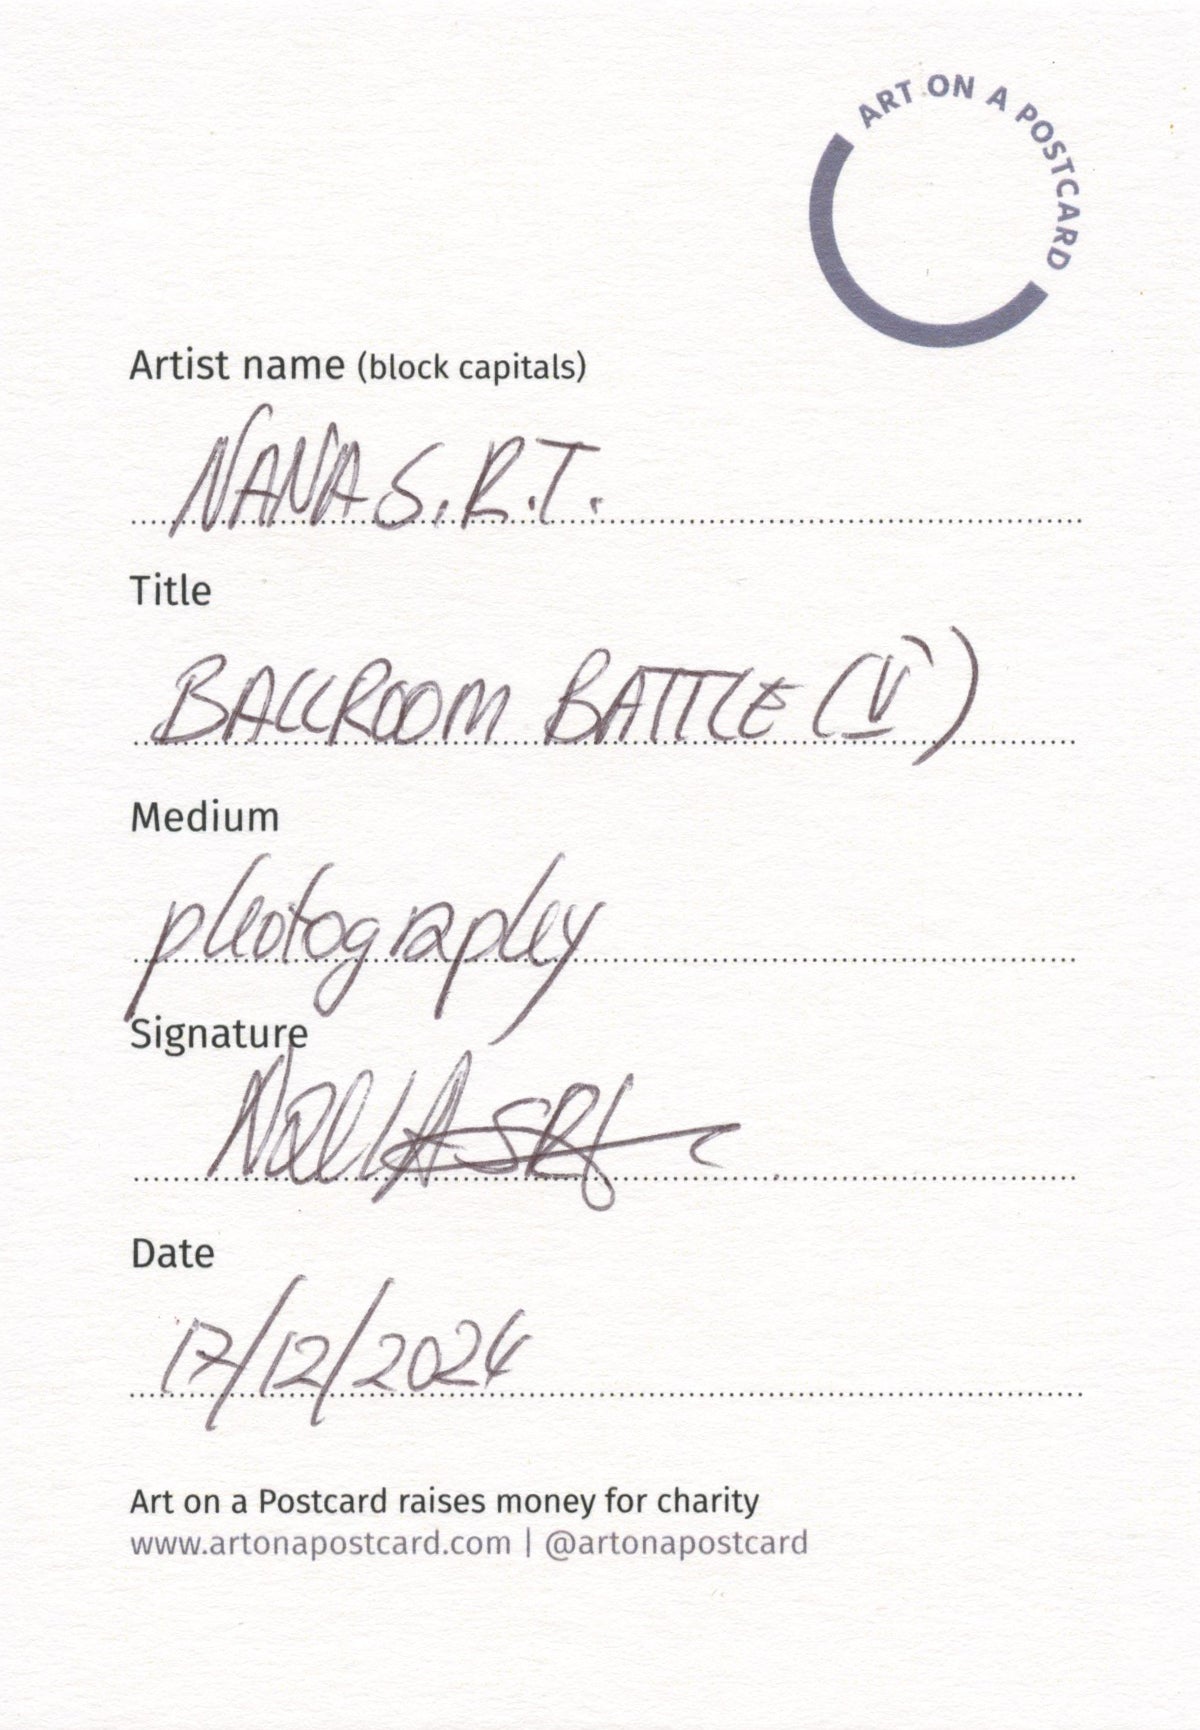 ART ON A POSTCARD
Artist name (block capitals)
NANA S.R.T.
Title
BALLROOM BATTLE (V)
Medium
photography
Signature
Date
17/12/2024
Art on a Postcard raises money for charity
www.artonapostcard.com | @artonapostcard